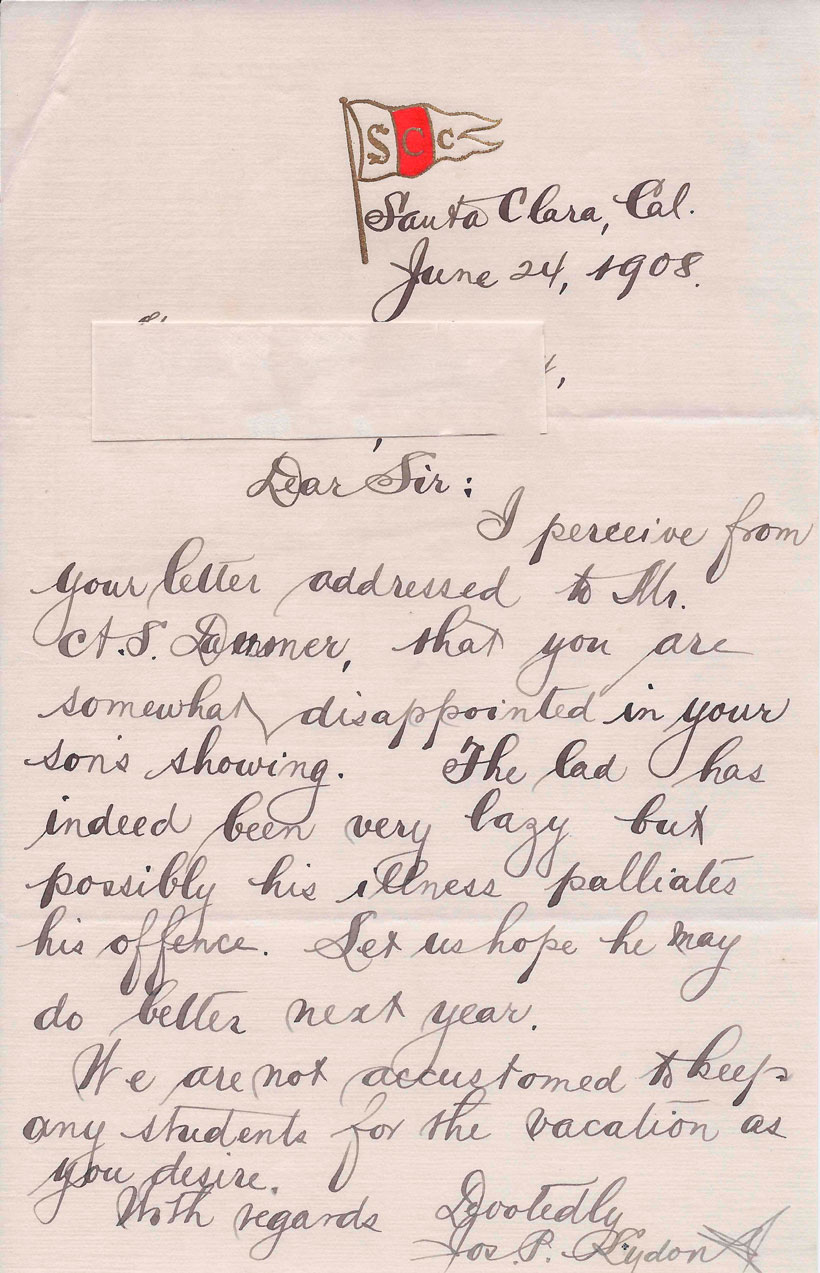 SCC
Santa Clara, Cal.
June 24, 1908.
Dear Sir:
I perceive from
your letter addressed to Mr.
A.S. that you are
somewhat disappointed in your
son's showing. The lad has
indeed been very lazy but
possibly his illness palliates
his offence. Let us hope he may
do better next year.
We are not accustomed to keep
any students for the vacation as
you desire.
With regards
Jos. P.